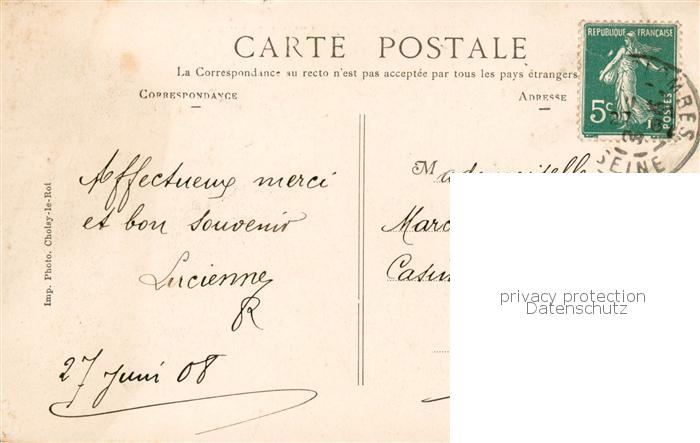 CARTE POSTALE
La Correspondance au recto n'est pas acceptée par tous les pays étrangers
CORRESPONDANCE
ADRESSE
RÉPUBLIQUE FRANÇAISE
5c
POSTES
SEINE
Imp. Photo. Choisy-le-Roi
Affectueux merci
et bon souvenir
Lucienne
R
27 juin 08
Mademoiselle
Marc
privacy protection
Datenschutz